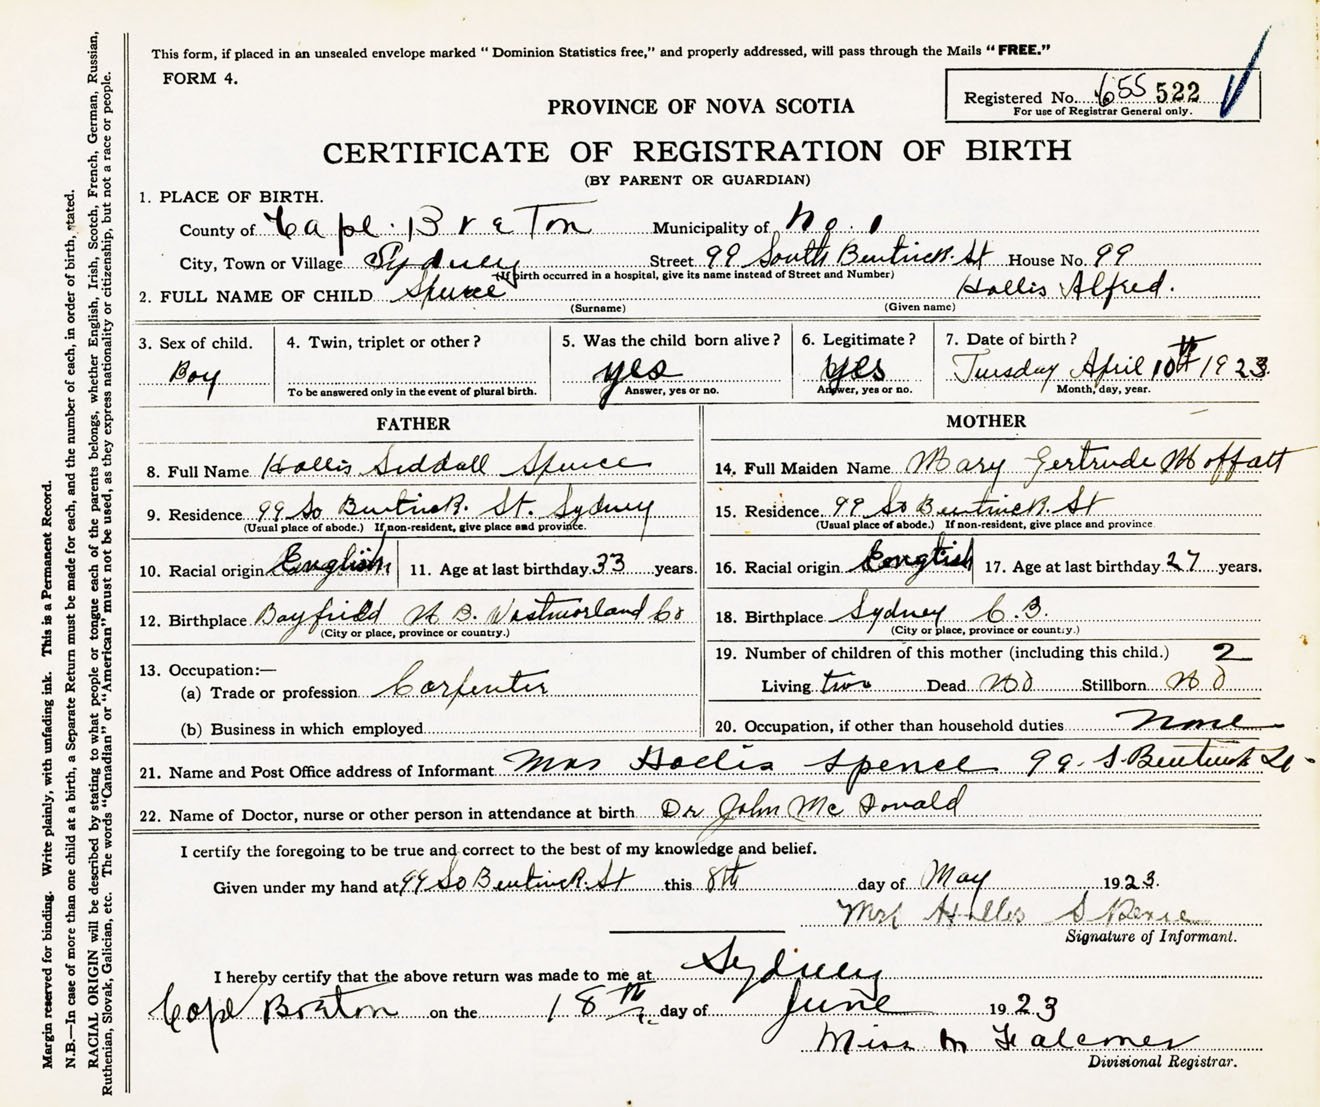 This form, if placed in an unsealed envelope marked “Dominion Statistics free,” and properly addressed, will pass through the Mails “FREE.”
FORM 4.
Registered No. 655 522
For use of Registrar General only.
PROVINCE OF NOVA SCOTIA
CERTIFICATE OF REGISTRATION OF BIRTH
(BY PARENT OR GUARDIAN)
1. PLACE OF BIRTH.
County of Cape Breton Municipality of No. 1
City, Town or Village Sydney Street 99 South Bentinck St House No. 99
(If birth occurred in a hospital, give its name instead of Street and Number)
2. FULL NAME OF CHILD Spence Hollis Alfred.
(Surname) (Given name)
3. Sex of child. 4. Twin, triplet or other? 5. Was the child born alive? 6. Legitimate? 7. Date of birth?
Boy yes Yes Tuesday April 10th 1923
To be answered only in the event of plural birth. Answer, yes or no. Answer, yes or no. Month, day, year.
FATHER
8. Full Name Hollis Siddall Spence
9. Residence 99 So Bentinck St. Sydney
(Usual place of abode.) If non-resident, give place and province.
10. Racial origin English 11. Age at last birthday 33 years.
12. Birthplace Bayfield N B. Westmorland Co
(City or place, province or country.)
13. Occupation:—
(a) Trade or profession Carpenter
(b) Business in which employed
MOTHER
14. Full Maiden Name Mary Gertrude Moffatt
15. Residence 99 So Bentinck St
(Usual place of abode.) If non-resident, give place and province
16. Racial origin English 17. Age at last birthday 27 years.
18. Birthplace Sydney C.B.
(City or place, province or country.)
19. Number of children of this mother (including this child.) 2
Living two Dead No Stillborn No
20. Occupation, if other than household duties None
21. Name and Post Office address of Informant Mrs Hollis Spence 99. S. Bentinck St.
22. Name of Doctor, nurse or other person in attendance at birth Dr John McDonald
I certify the foregoing to be true and correct to the best of my knowledge and belief.
Given under my hand at 99 So Bentinck St this 8th day of May 1923.
Mrs Hollis Spence
Signature of Informant.
I hereby certify that the above return was made to me at Sydney
Cape Breton on the 18th day of June 1923
Miss M Falconer
Divisional Registrar.
Margin reserved for binding. Write plainly, with unfading ink. This is a Permanent Record.
N.B.—In case of more than one child at a birth, a Separate Return must be made for each, and the number of each, in order of birth, stated.
RACIAL ORIGIN will be described by stating to what people or tongue each of the parents belongs, whether English, Irish, Scotch, French, German, Russian,
Ruthenian, Slovak, Galician, etc. The words “Canadian” or “American” must not be used, as they express nationality or citizenship, but not a race or people.